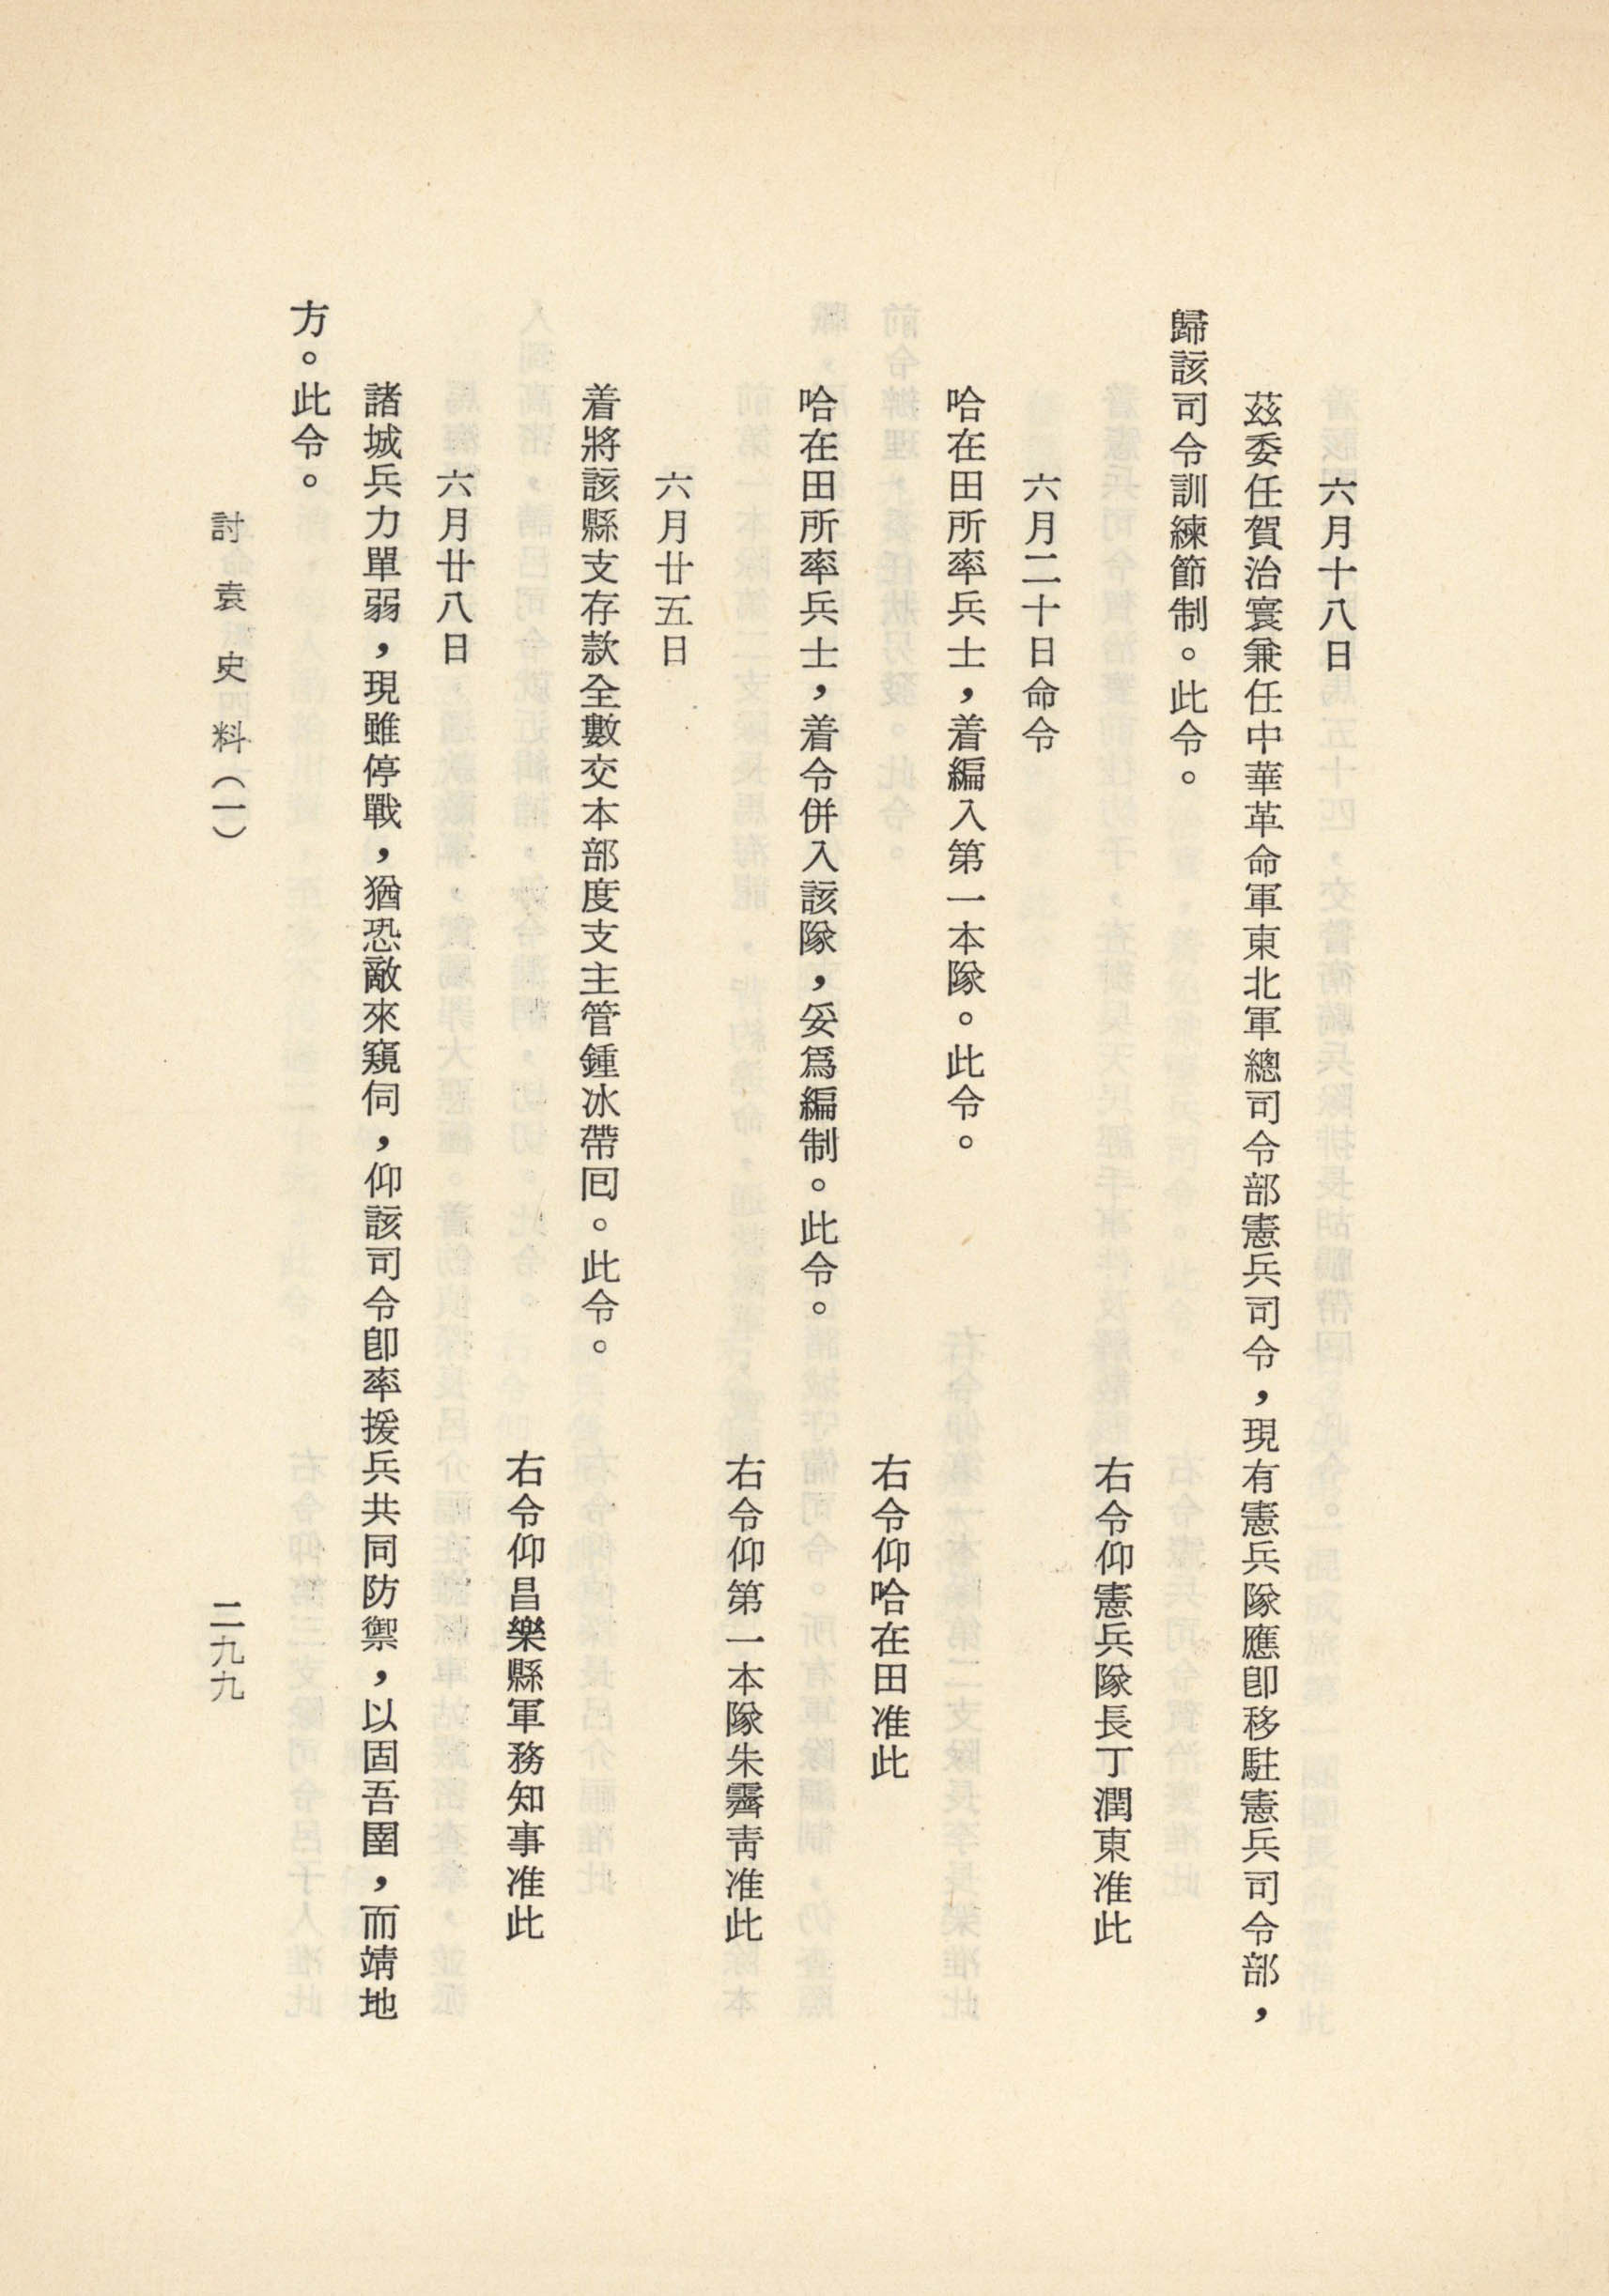 六月十八日
茲委任賀治寰兼任中華革命軍東北軍總司令部憲兵司令，現有憲兵隊應卽移駐憲兵司令部，
歸該司令訓練節制。此令。
右令仰憲兵隊長丁潤東准此
六月二十日命令
哈在田所率兵士，着編入第一本隊。此令。
右令仰哈在田准此
哈在田所率兵士，着令併入該隊，妥爲編制。此令。
右令仰第一本隊朱霽靑准此
六月廿五日
着將該縣支存款全數交本部度支主管鍾冰帶囘。此令。
右令仰昌樂縣軍務知事准此
六月廿八日
諸城兵力單弱，現雖停戰，猶恐敵來窺伺，仰該司令卽率援兵共同防禦，以固吾圉，而靖地
方。此令。
討袁史料（一）
二九九